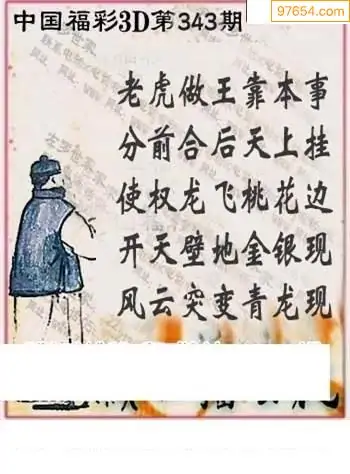 97654.com
中国福彩3D第343期
老虎做王靠本事
分前合后天上挂
使权龙飞桃花边
开天壁地金银现
风云突变青龙现